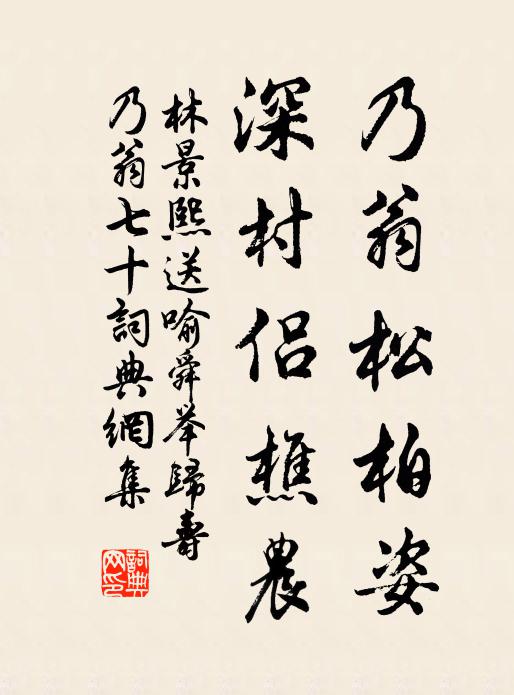 乃翁松柏姿
深村侣樵農
林景熙送喻舜举歸壽
乃翁七十詞典網集
詞典网印